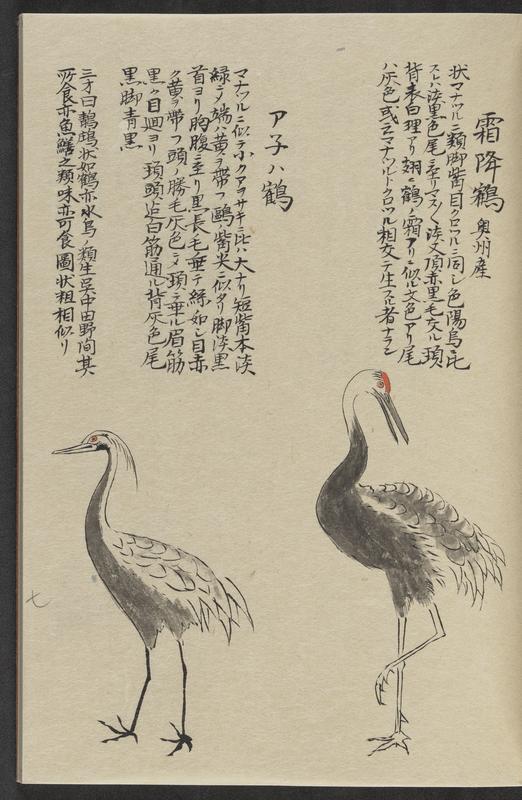 霜降鶴 奥州産
状マナツルニ類脚觜目クロツルニ同シ色陽烏ニ比
スレハ淡黒色尾ニ至リマスマス淡又頂赤黒毛交ル頚
背表白理アリ翅ニ鶴ノ霜フリニ似ル文色アリ尾
ハ灰色或云マナツルトクロツル相交テ生スル者ナラン
アネハ鶴
マナツルニ似テ小クアヲサキニ比ハ大ナリ短觜本淡
緑ニメ端ハ黄ヲ帯フ鷗ノ觜尖ニ似タリ脚淡黒
首ヨリ胸腹ニ至リ黒長毛垂テ絲ノ如シ目赤
ク黄ヲ帯フ頭ノ勝毛灰色ニメ頚ニ垂ル眉筋
黒ク目廻ヨリ頚頭迄白筋通ル背灰色尾
黒脚青黒
三才曰鷫鷞状如鶴亦水鳥ノ類生呉中田野間其
所食亦魚鱔之類味亦可食圖状粗相似リ
七